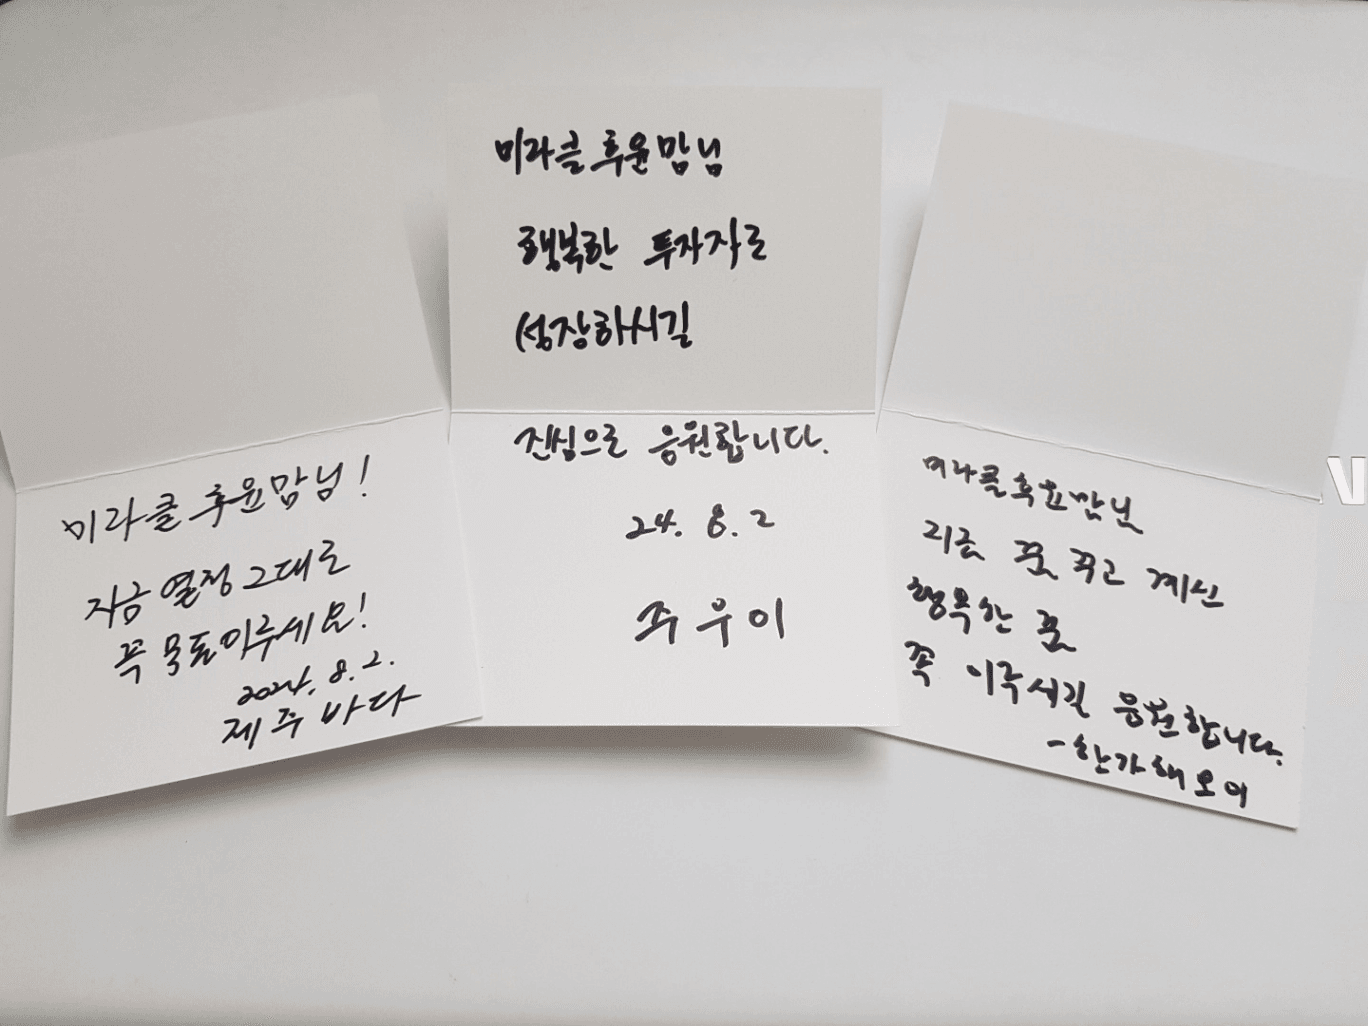 미라클후윤맘님!
지금 열정 그대로
꼭 목표 이루세요!
2024. 8. 2.
제주바다
미라클후윤맘님
행복한 투자자로
성장하시길
진심으로 응원합니다.
24. 8. 2
주우이
미라클후윤맘님
지금 꿈 꾸고 계신
행복한 꿈
꼭 이루시길 응원합니다.
-한가해보이